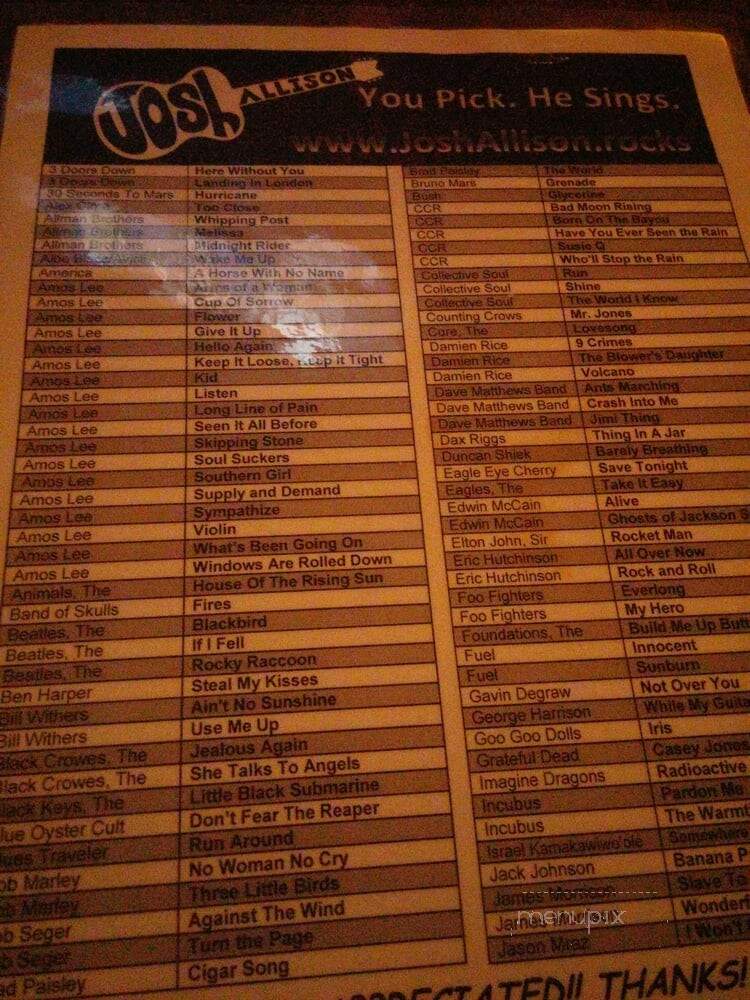 JOSH ALLISON
You Pick. He Sings.
www.JoshAllison.rocks
3 Doors Down Here Without You
3 Doors Down Landing In London
30 Seconds To Mars Hurricane
Alex Clare Too Close
Allman Brothers Whipping Post
Allman Brothers Melissa
Allman Brothers Midnight Rider
Wake Me Up
America A Horse With No Name
Amos Lee Arms of a Woman
Amos Lee Cup Of Sorrow
Amos Lee Flower
Amos Lee Give It Up
Amos Lee Hello Again
Amos Lee Keep It Loose, Keep It Tight
Amos Lee Kid
Amos Lee Listen
Amos Lee Long Line of Pain
Amos Lee Seen It All Before
Amos Lee Skipping Stone
Amos Lee Soul Suckers
Amos Lee Southern Girl
Amos Lee Supply and Demand
Amos Lee Sympathize
Amos Lee Violin
Amos Lee What's Been Going On
Amos Lee Windows Are Rolled Down
Animals, The House Of The Rising Sun
Band of Skulls Fires
Beatles, The Blackbird
Beatles, The If I Fell
Beatles, The Rocky Raccoon
Ben Harper Steal My Kisses
Bill Withers Ain't No Sunshine
Bill Withers Use Me Up
Black Crowes, The Jealous Again
Black Crowes, The She Talks To Angels
lack Keys, The Little Black Submarine
lue Oyster Cult Don't Fear The Reaper
lues Traveler Run Around
ob Marley No Woman No Cry
ob Marley Three Little Birds
ob Seger Against The Wind
b Seger Turn the Page
ad Paisley Cigar Song
Brad Paisley The World
Bruno Mars Grenade
Bush Glycerine
CCR Bad Moon Rising
CCR Born On The Bayou
CCR Have You Ever Seen the Rain
CCR Susie Q
CCR Who'll Stop the Rain
Collective Soul Run
Collective Soul Shine
Collective Soul The World I Know
Counting Crows Mr. Jones
Cure, The Lovesong
Damien Rice 9 Crimes
Damien Rice The Blower's Daughter
Damien Rice Volcano
Dave Matthews Band Ants Marching
Dave Matthews Band Crash Into Me
Dave Matthews Band Jimi Thing
Dax Riggs Thing In A Jar
Duncan Shiek Barely Breathing
Eagle Eye Cherry Save Tonight
Eagles, The Take It Easy
Edwin McCain Alive
Edwin McCain Ghosts of Jackson S
Elton John, Sir Rocket Man
Eric Hutchinson All Over Now
Eric Hutchinson Rock and Roll
Foo Fighters Everlong
Foo Fighters My Hero
Foundations, The Build Me Up Butt
Fuel Innocent
Fuel Sunburn
Gavin Degraw Not Over You
George Harrison While My Guita
Goo Goo Dolls Iris
Grateful Dead Casey Jones
Imagine Dragons Radioactive
Incubus Pardon Me
Incubus The Warmt
Israel Kamakawiwo'ole Somewhere
Jack Johnson Banana P
James Morrison Slave To
James Wonderf
Jason Mraz I Won't
menupix
PPRECIATED!! THANKS!